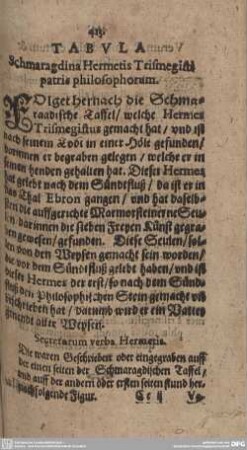 TABVLA
Schmaragdina Hermetis Trismegisti
patris philosophorum.
FOlget hernach die Schma-
raadische Taffel/ welche Hermes
Trismegistus gemacht hat/ vnd ist
nach seinem Todt in einer Höle gefunden/
dorinnen er begraben gelegen/ welche er in
seinen henden gehalten hat. Dieser Hermes
hat gelebt nach dem Sündtfluß/ da ist er in
das Thal Ebron gangen/ vnd hat daselb-
sten die auffgerichte Marmorsteinerne Seu-
len darinnen die sieben Freyen Künst gegra-
ben gewesen/ gefunden. Diese Seulen/ sol-
len von den Weysen gemacht sein worden/
die vor dem Sündtfluß gelebt haben/ vnd ist
dieser Hermes der erst/ so nach dem Sündt-
fluß den Philosophischen Stein gemacht vñ
beschrieben hat/ darumb wird er ein Vatter
genendt aller Weysen.
Secretorum verba Hermetis.
Die waren Geschrieben oder eingegraben auff
der einen seiten der Schmaragdischen Taffel/
vnd auff der andern oder ersten seiten stund her-
nachfolgende Figur.